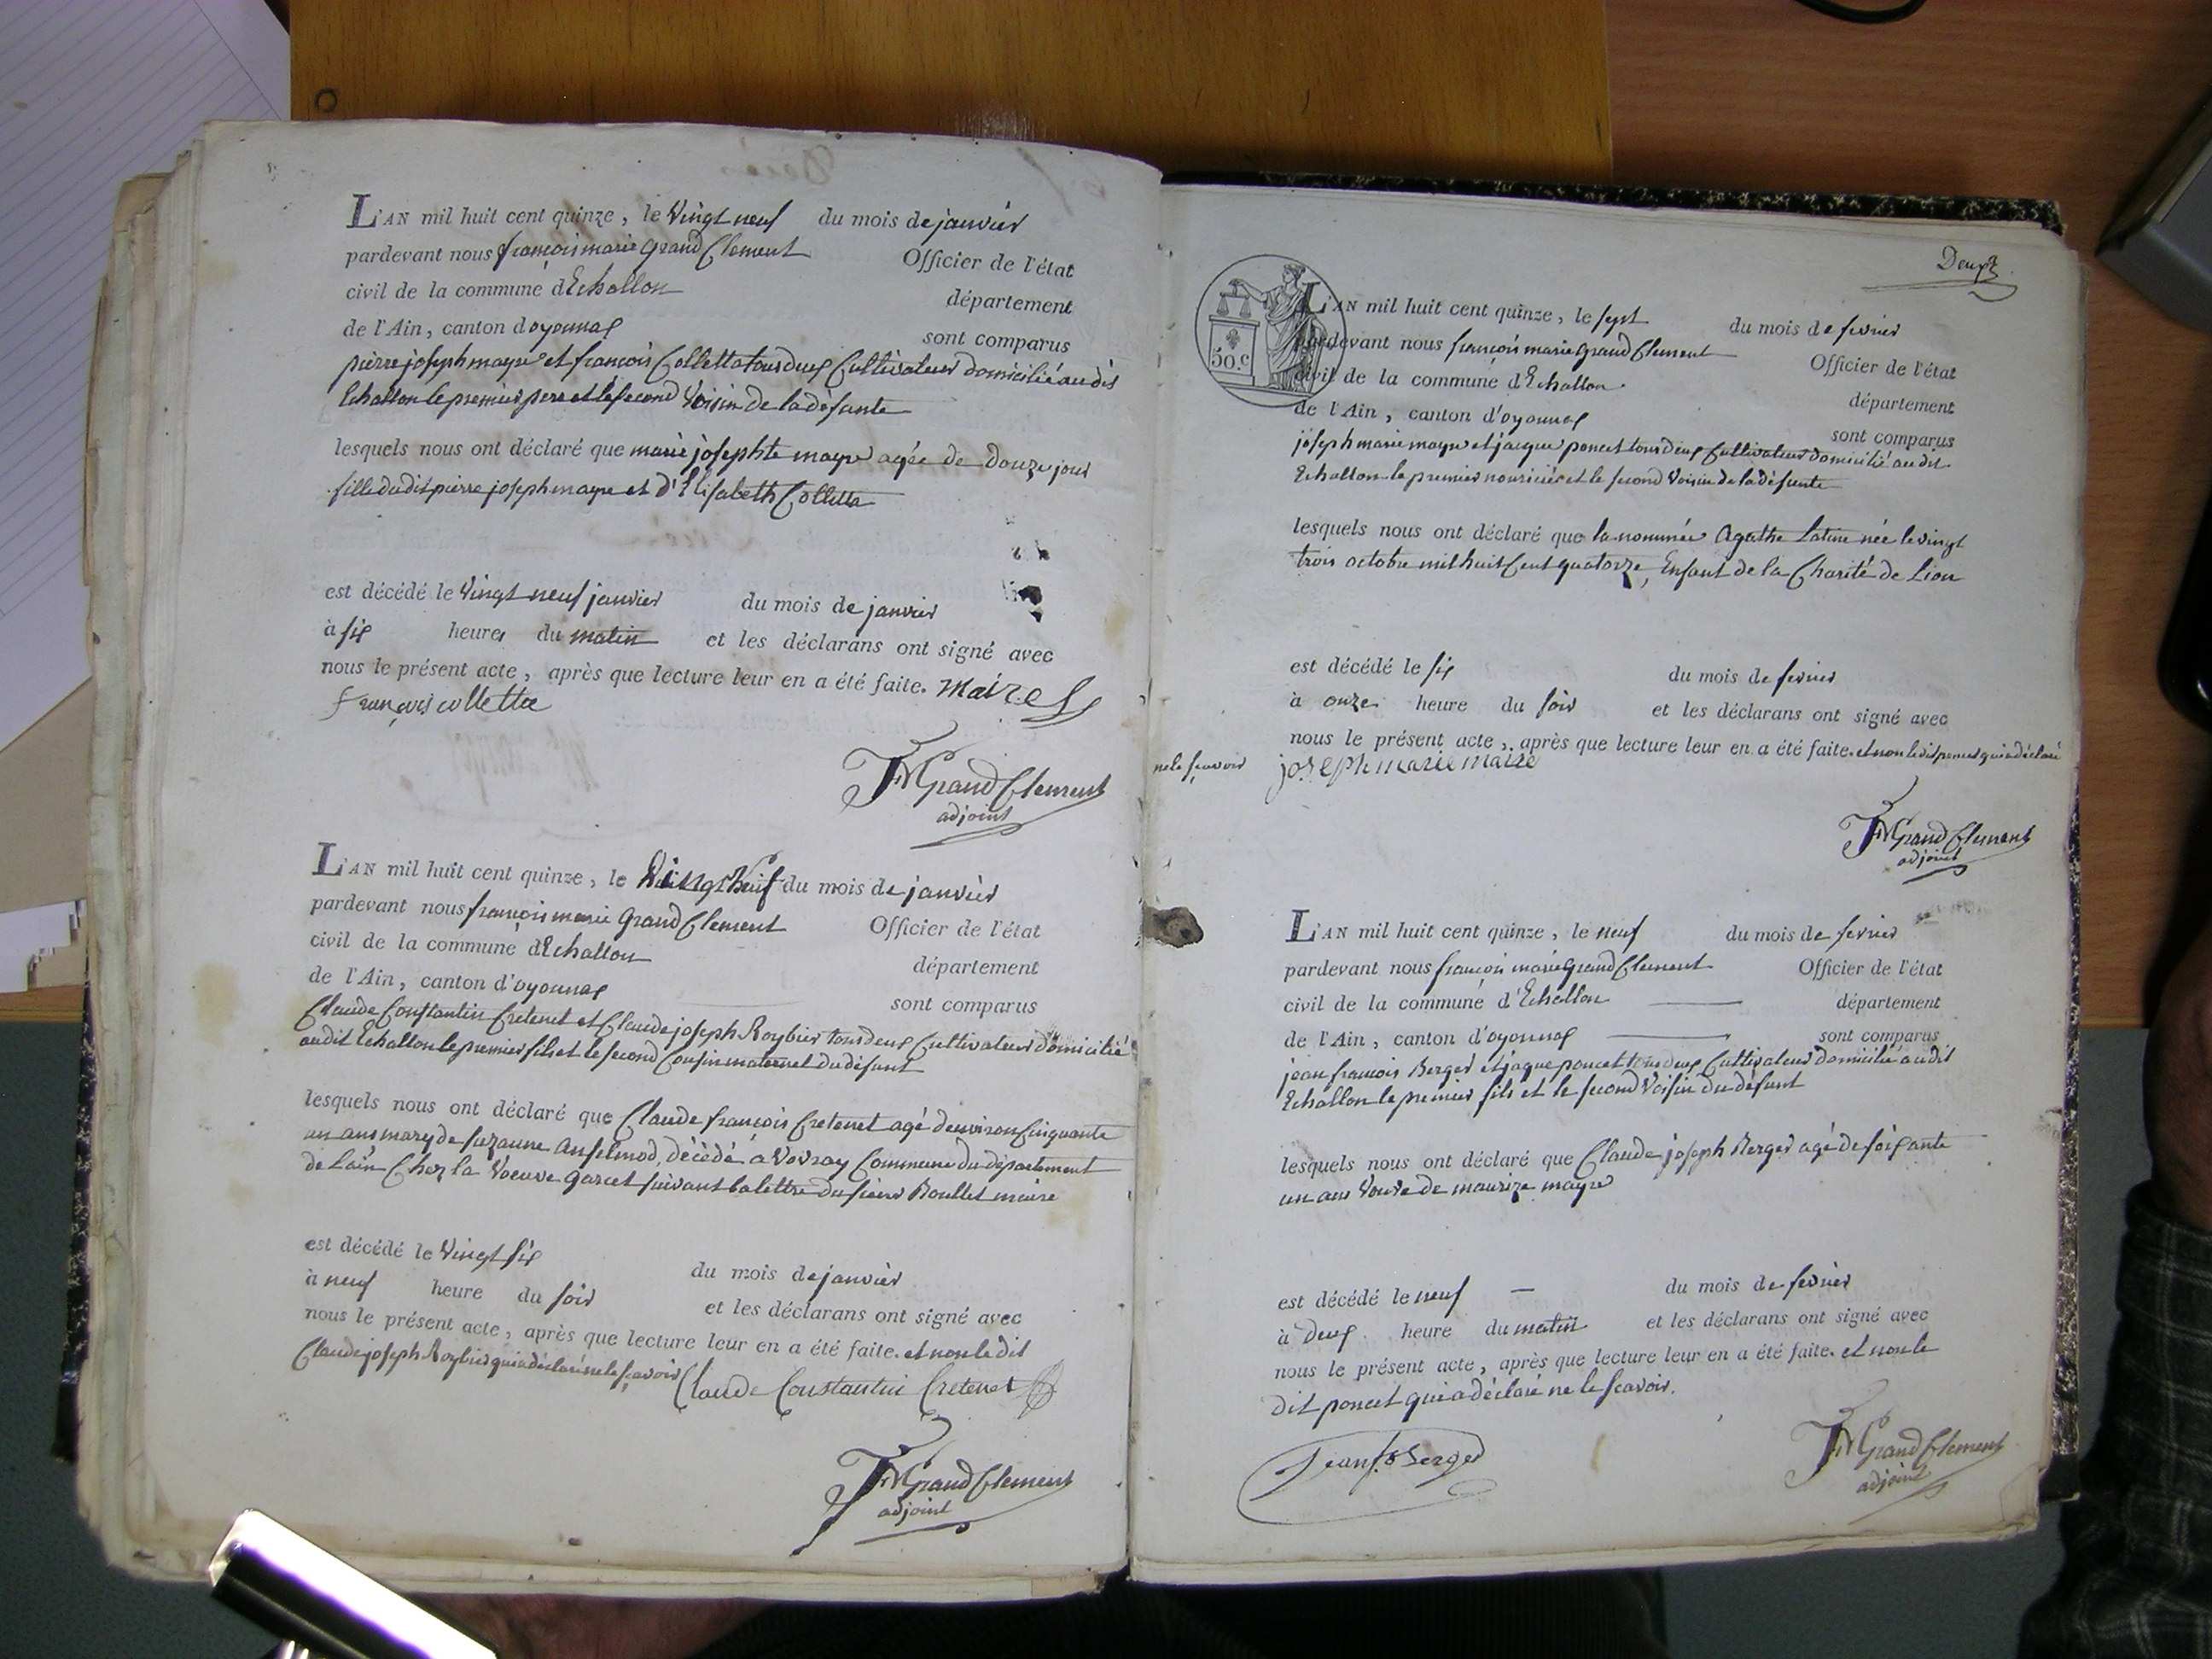 L'AN mil huit cent quinze, le vingt neuf du mois de janvier
pardevant nous françois marie grand Clement Officier de l'état
civil de la commune d'Echallon département
de l'Ain, canton d'oyonnax sont comparus
pierre joseph mayre et françois Colletta tous deux Cultivateurs domicilié audit
Echallon le premier pere et le second voisin de la défunte
lesquels nous ont déclaré que marie josephte mayre agée de douze jours
fille dudit pierre joseph mayre et d'Elisabeth Colletta
est décédé le vingt neuf janvier du mois de janvier
à six heures du matin et les déclarans ont signé avec
nous le présent acte, après que lecture leur en a été faite. maire
françois colletta
FM Grand Clement
adjoint
L'AN mil huit cent quinze, le vingt huit du mois de janvier
pardevant nous françois marie grand Clement Officier de l'état
civil de la commune d'Echallon département
de l'Ain, canton d'oyonnax sont comparus
Claude Constantin Cretenet et Claude joseph Roybier tous deux Cultivateurs domicilié
audit Echallon le premier fils et le second Cousin maternel du défunt
lesquels nous ont déclaré que Claude françois Cretenet agé denviron Cinquante
un ans mary de suzanne Anselmod, décèdé à Vovray Commune du département
de Lain Chez la Voeuve garcet suivant la lettre du sieur Roullet maire
est décédé le vingt six du mois de janvier
à neuf heure du soir et les déclarans ont signé avec
nous le présent acte, après que lecture leur en a été faite. et non le dit
Claude joseph Roybier qui a déclaré ne le sçavoir Claude Constantin Cretenet
FM Grand Clement
adjoint
Deux
50.c
L'AN mil huit cent quinze, le sept du mois de fevrier
pardevant nous françois marie grand Clement Officier de l'état
civil de la commune d'Echallon département
de l'Ain, canton d'oyonnax sont comparus
joseph marie mayre et jacque poncet tous deux Cultivateurs domicilié audit
Echallon le premier nouricier et le second Voisin de la défunte
lesquels nous ont déclaré que la nommée Agathe Latine née le vingt
trois octobre mil huit Cent quatorze, Enfant de la Charité de Lion
est décédé le six du mois de fevrier
à onze heure du soir et les déclarans ont signé avec
nous le présent acte, après que lecture leur en a été faite. et non ledit poncet qui a déclaré
ne le sçavoir joseph marie maire
FM Grand Clement
adjoint
L'AN mil huit cent quinze, le neuf du mois de fevrier
pardevant nous françois marie grand Clement Officier de l'état
civil de la commune d'Echallon département
de l'Ain, canton d'oyonnax sont comparus
jean françois Berger et jaque poncet tous deux Cultivateurs domicilié audit
Echallon le premier fils et le second Voisin du défunt
lesquels nous ont déclaré que Claude joseph Berger agé de soixante
un ans de maurize mayre
est décédé le neuf du mois de fevrier
à deux heure du matin et les déclarans ont signé avec
nous le présent acte, après que lecture leur en a été faite. et non le
dit poncet qui a déclaré ne le scavoir.
Jean fs Berger
FM Grand Clement
adjoint